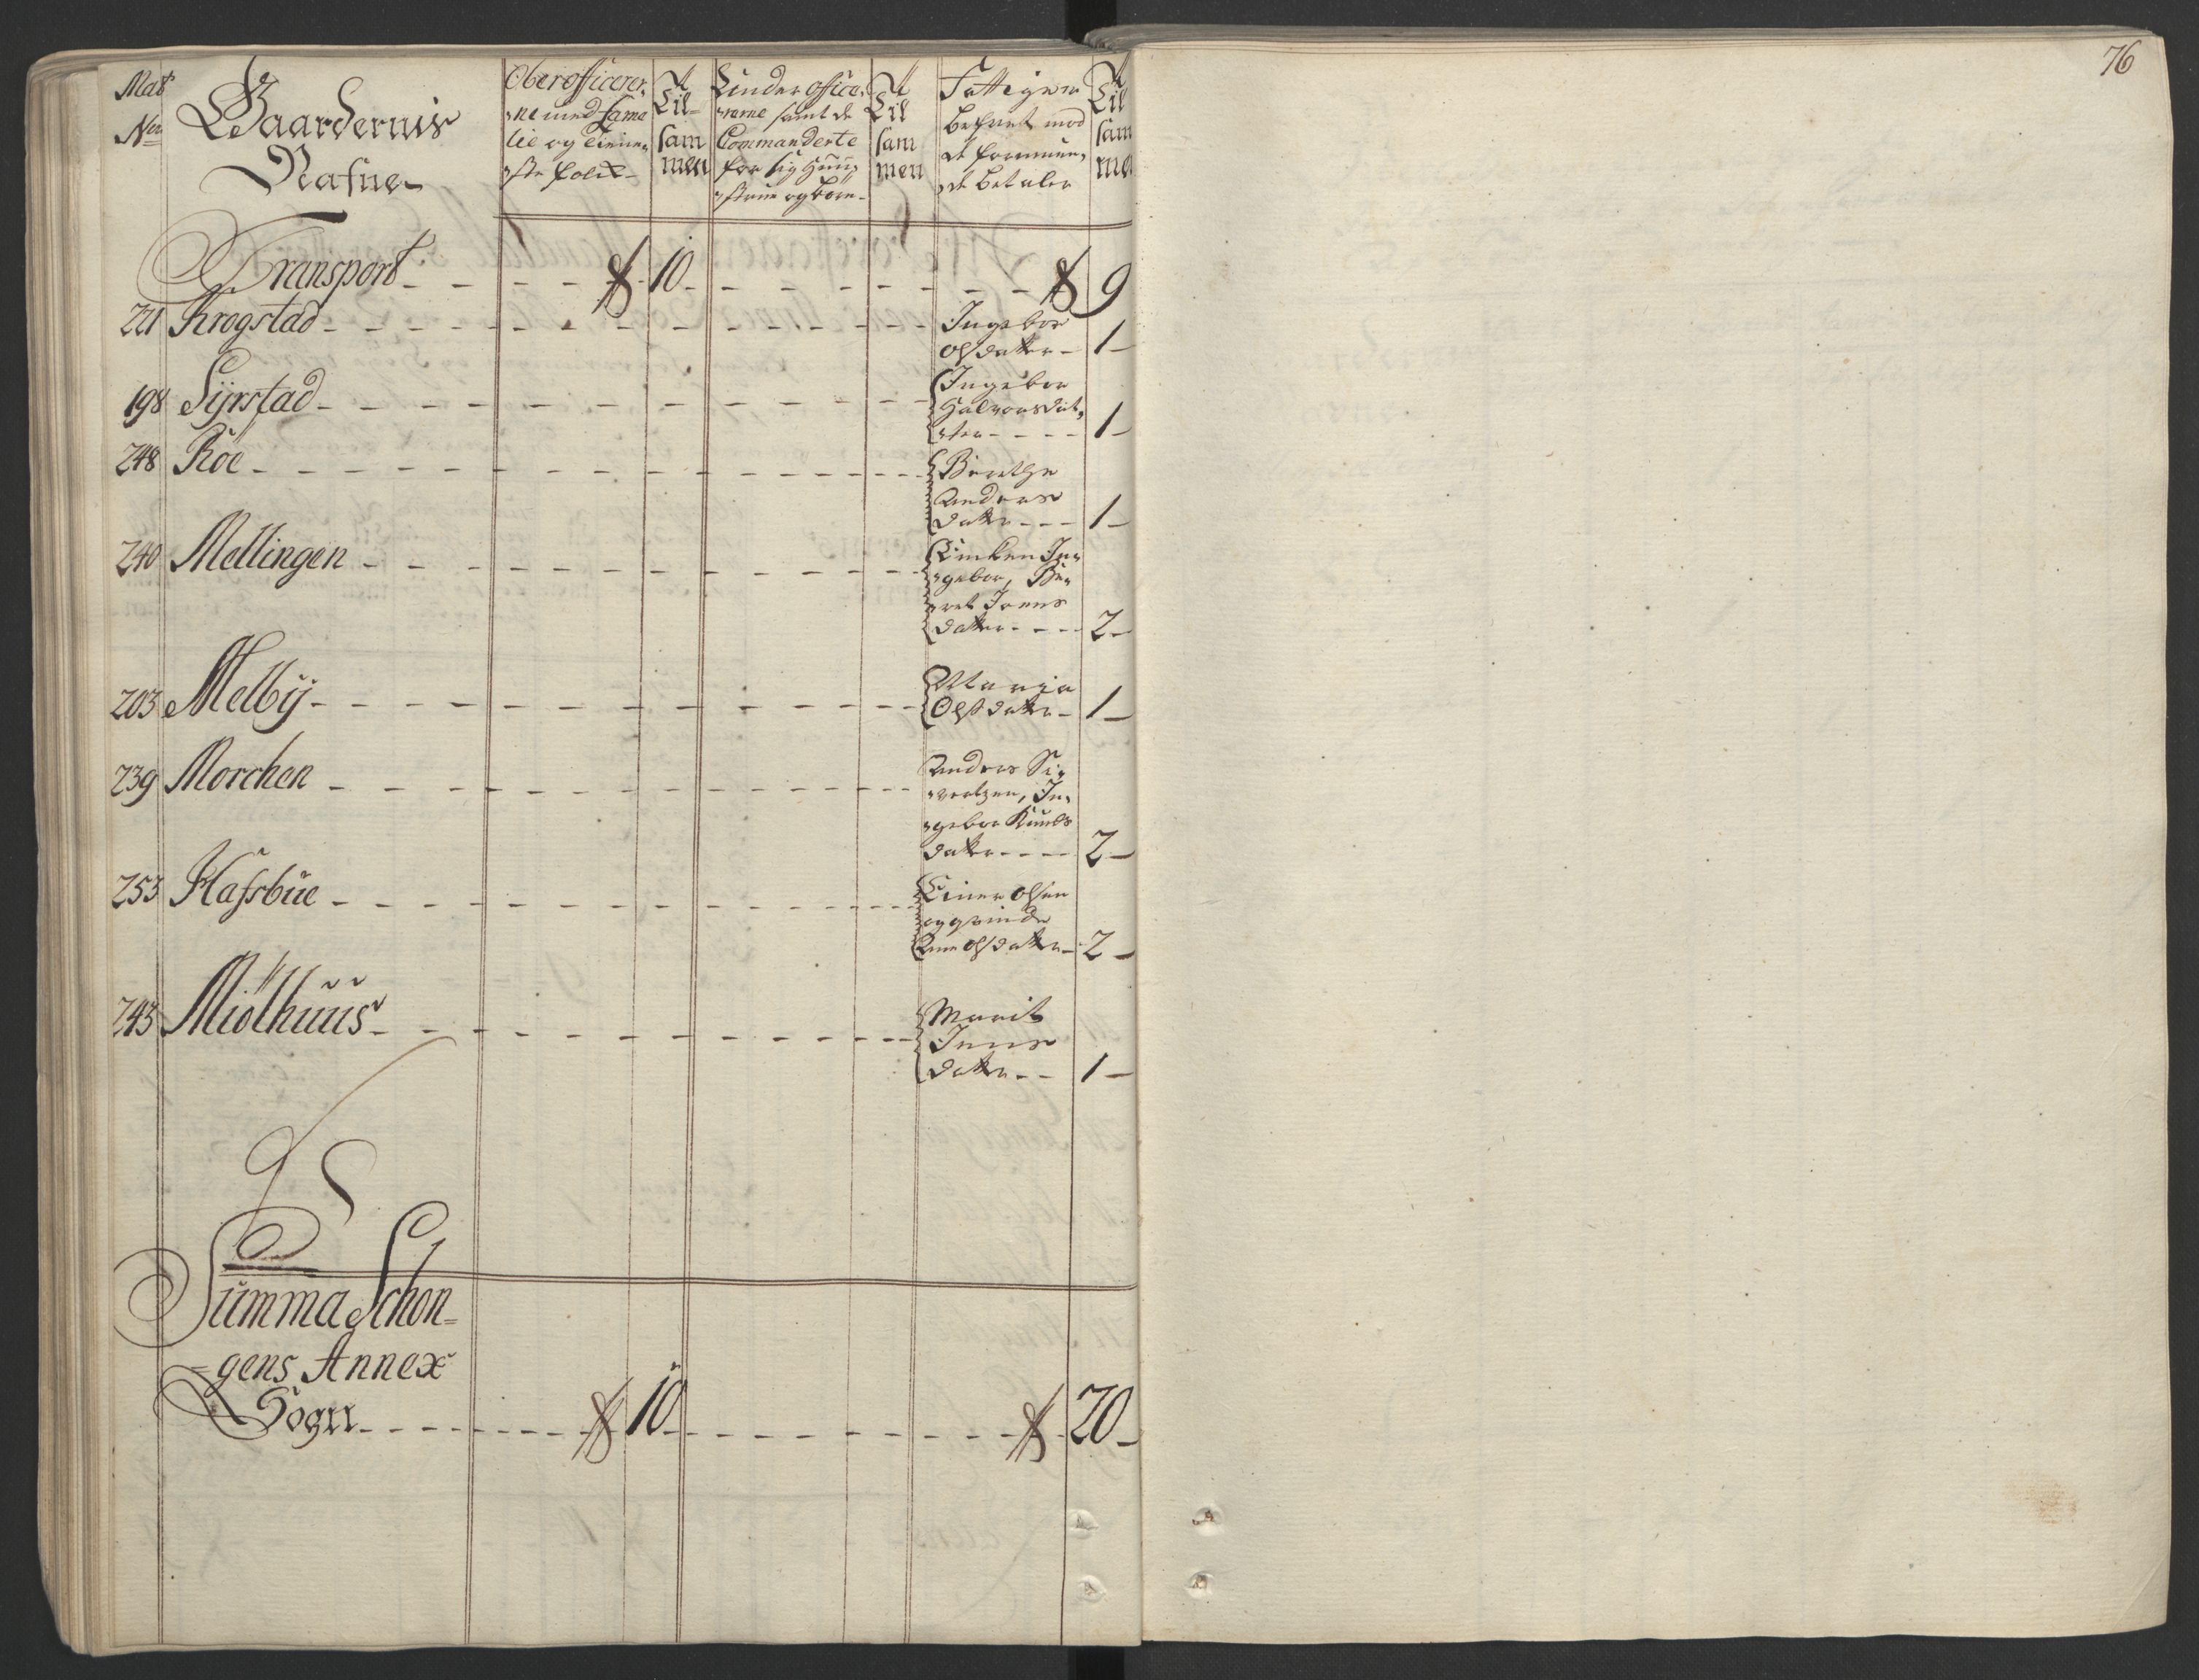 76
Mat
No
Gaardernis
Nafne
Oberofficerer,
ne med Fame
lie og tienne,
ste folk
Til=
sam
men
Under office,
rerne samt de
Commanderte
for sig Huu,
struer og børn
Til
sam
men
Fattige
befriet mod
at formuen,
de betaler
Til
sam
me
Transport - - - - 10 - - - - - - - 9
221 Krogstad - - - Ingebor
Olsdatter - 1 -
198 Syrstad - - - Ingebor
Halvorsdat,
ter - - - - 1 -
248 Röe - - - Berethe
Anders
datter - - - 1 -
240 Mellingen - - - Enken In,
gebor, Be,
ret Joens
datter - - - 2 -
203 Melbÿ - - - Maria
Olsdatter - 1 -
239 Morchen - - - Anders Si,
vertzen, In,
gebor Knuds
datter - - - - 2 -
253 Hafsbue - - - Einer Olsen
og qvinde
Ane Olsdatter - 2 -
243 Miölhuus - - - Marit
Jens
datter - - 1 -
Summa Schon=
=gens Annex
Sogn - - - - 10 - - - - - - 20 -